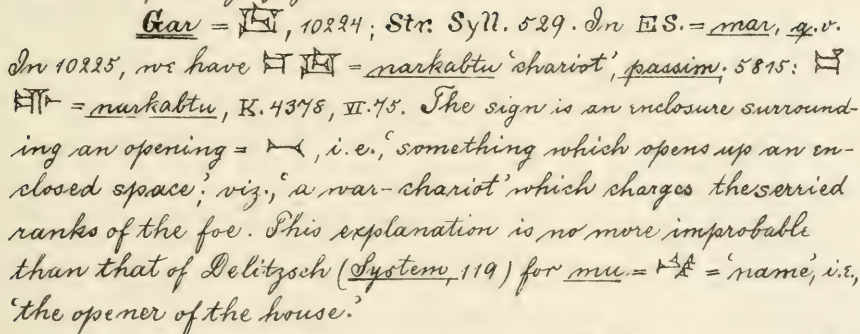 Gar = 𒃻, 10224; Str. Syll. 529. In ES. = mar, q.v.
In 10225, we have = narkabtu ‘chariot’, passim. 5815:
= narkabtu, K. 4378, VI. 75. The sign is an enclosure surround-
ing an opening = , i.e., ‘something which opens up an en-
closed space’; viz., ‘a war-chariot’ which charges the serried
ranks of the foe. This explanation is no more improbable
than that of Delitzsch (System, 119) for mu = = ‘name’, i.e.,
‘the opener of the house.’